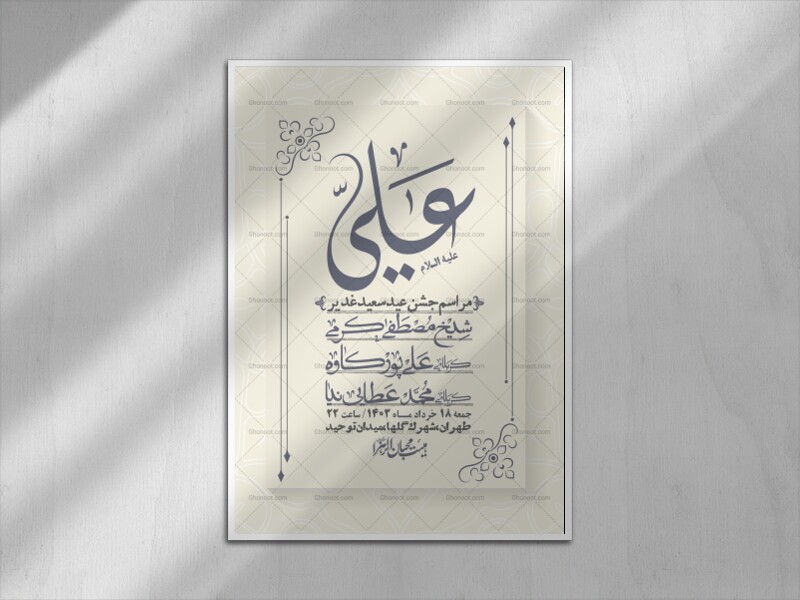 علی
علیه السلام
مراسم جشن عید سعید غدیر
شیخ مصطفی کرمی
کربلائی علی پورکاوه
کربلائی محمد عطایی نیا
جمعه ۱۸ خرداد ماه ۱۴۰۳ / ساعت ۲۲
طهران، شهرک گلها، میدان توحید
هیئت محبان الزهرا
Ghonoot.com